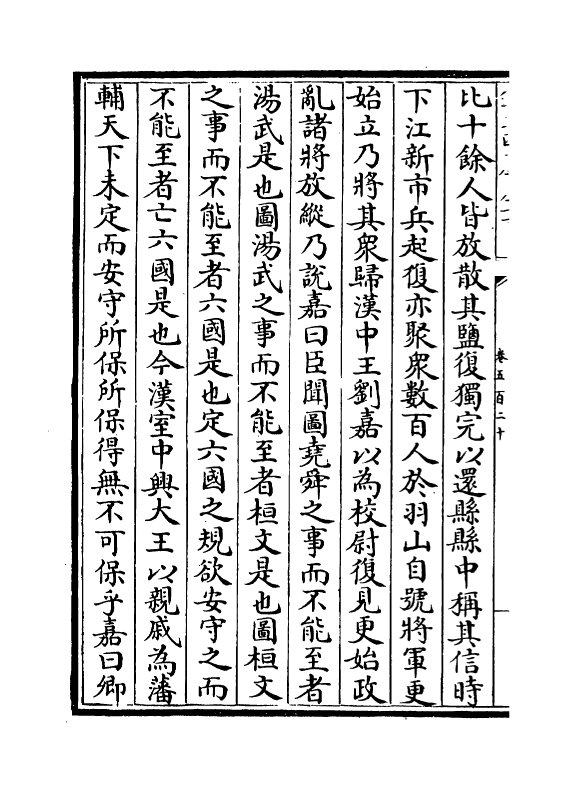 比十餘人皆放散其鹽復獨完以還縣縣中稱其信時
下江新市兵起復亦聚衆數百人於羽山自號將軍更
始立乃將其衆歸漢中王劉嘉以為校尉復見更始政
亂諸將放縱乃說嘉曰臣聞圖堯舜之事而不能至者
湯武是也圖湯武之事而不能至者桓文是也圖桓文
之事而不能至者六國是也定六國之規欲安守之而
不能至者亡六國是也今漢室中興大王以親戚為藩
輔天下未定而安守所保所保得無不可保乎嘉曰卿
卷五百二十